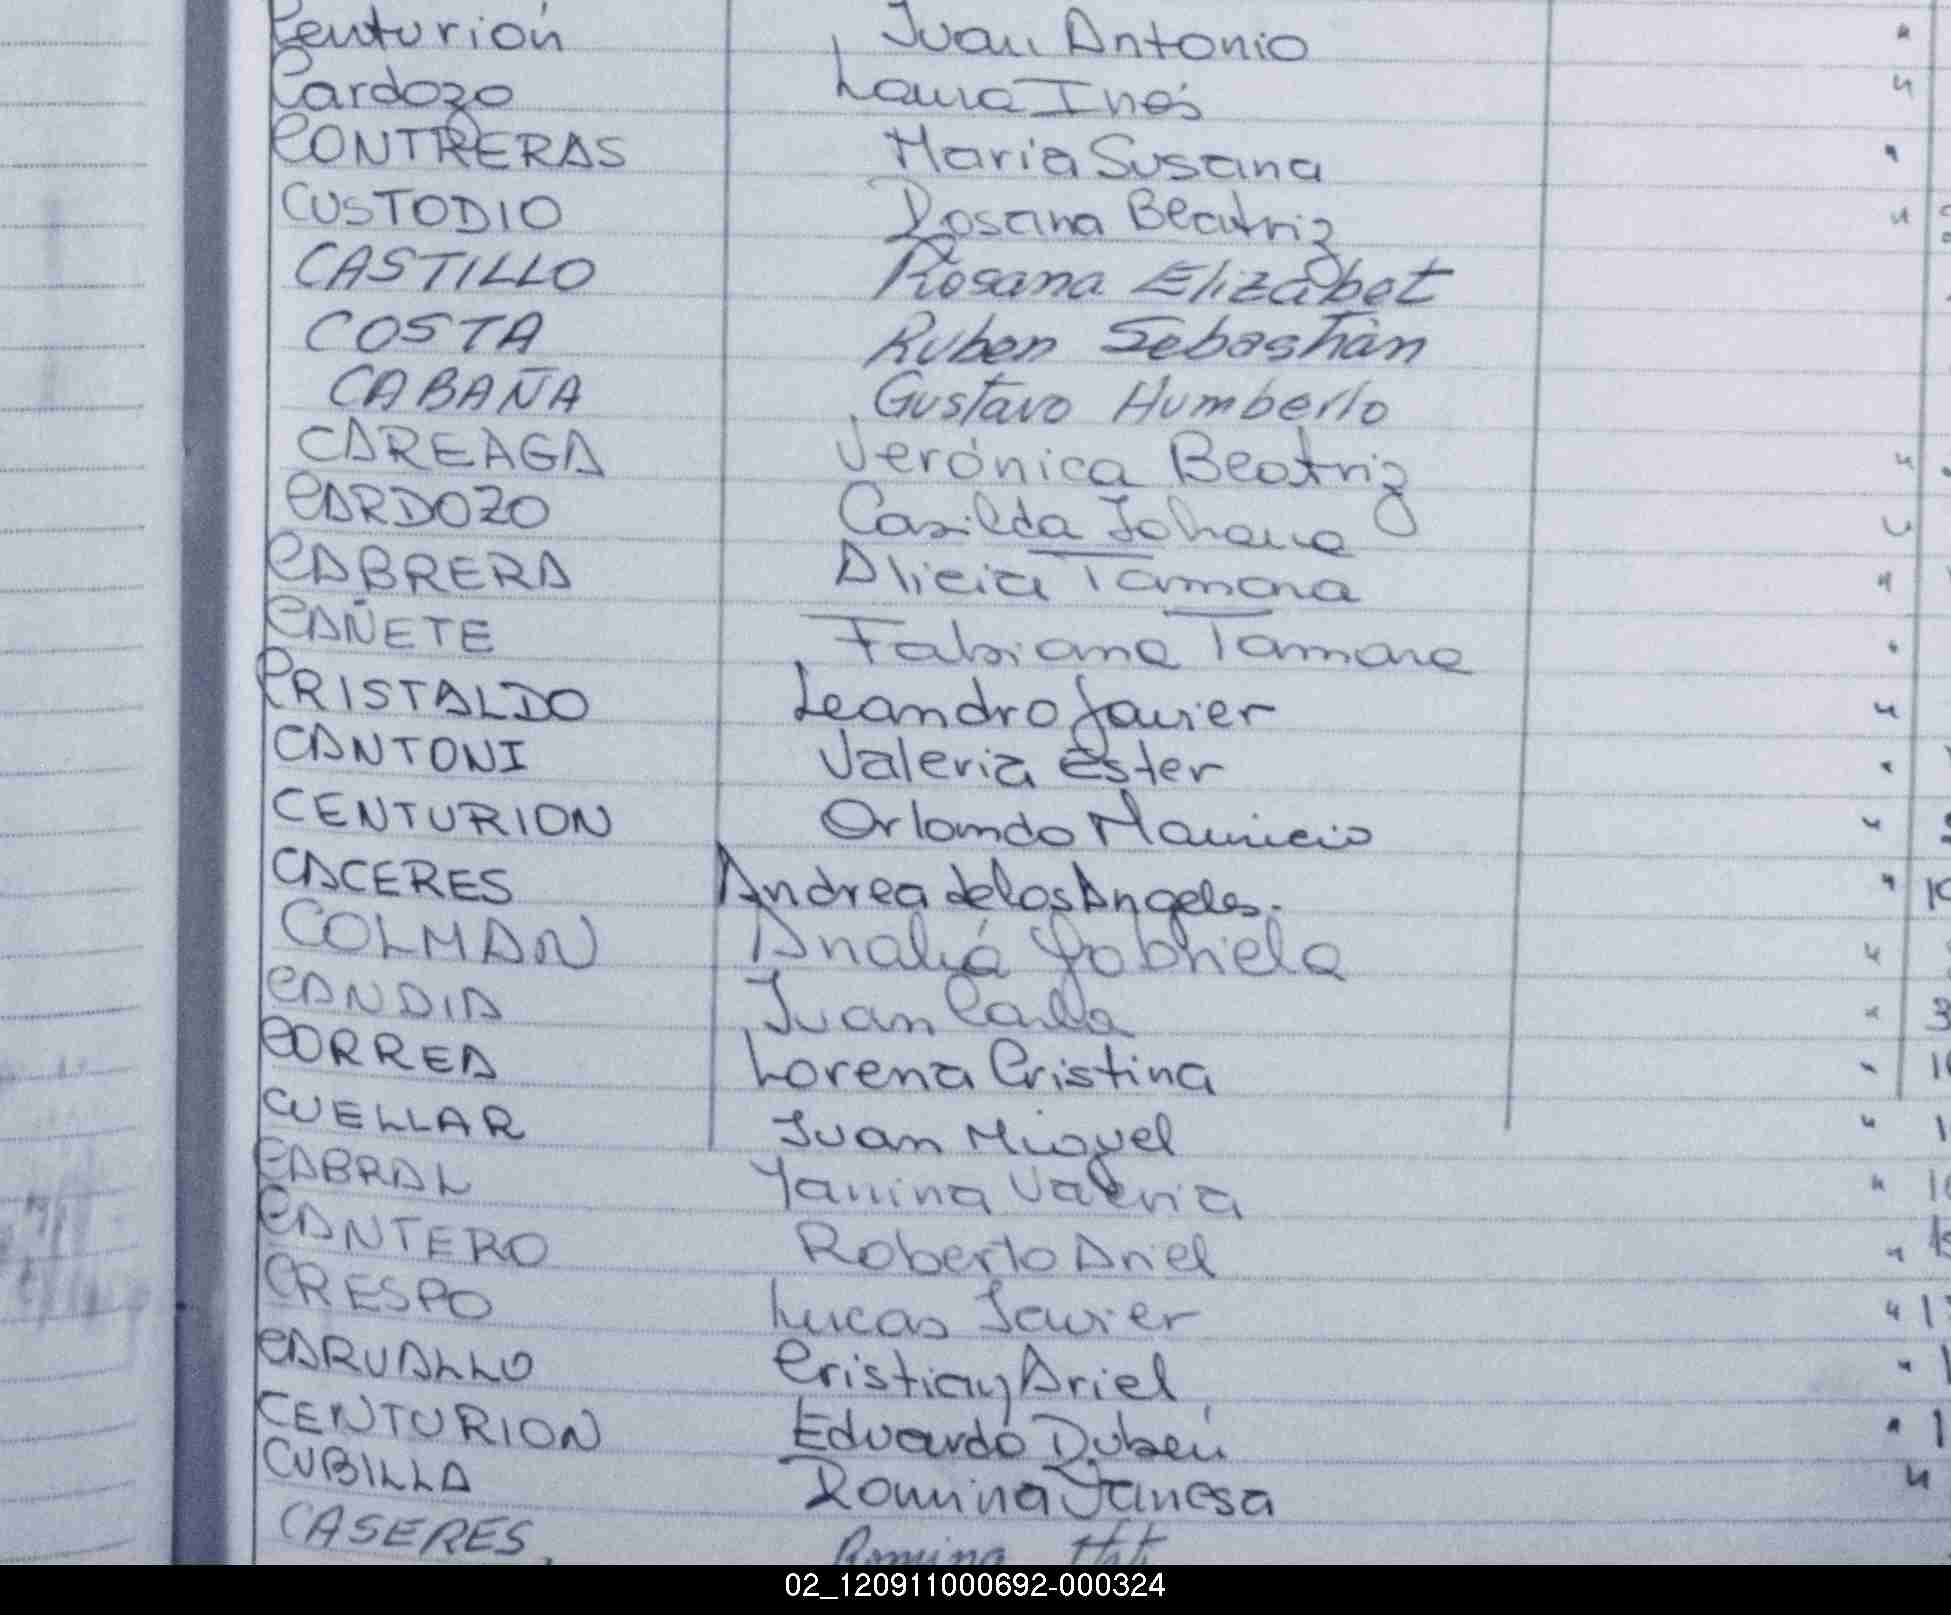 Centurión Juan Antonio "
Cardozo Laura Inés "
CONTRERAS María Susana "
CUSTODIO Rosana Beatriz "
CASTILLO Rosana Elizabet
COSTA Ruben Sebastián
CABAÑA Gustavo Humberto
CAREAGA Verónica Beatriz "
CARDOZO Casilda Johana "
CABRERA Alicia Tamara "
CAÑETE Fabiana Tamara "
CRISTALDO Leandro Javier "
CANTONI Valeria Ester "
CENTURION Orlando Mauricio "
CACERES Andrea de los Angeles. "
COLMAN Analiá Gabriela "
CANDIA Juan "
CORREA Lorena Cristina "
CUELLAR Juan Miguel "
CABRAL Yanina Valeria "
CANTERO Roberto Ariel "
CRESPO Lucas Javier "
CARVALLO Cristian Ariel "
CENTURION Eduardo Rubén "
CUBILLA Romina Vanesa "
CASERES Romina
02_120911000692-000324